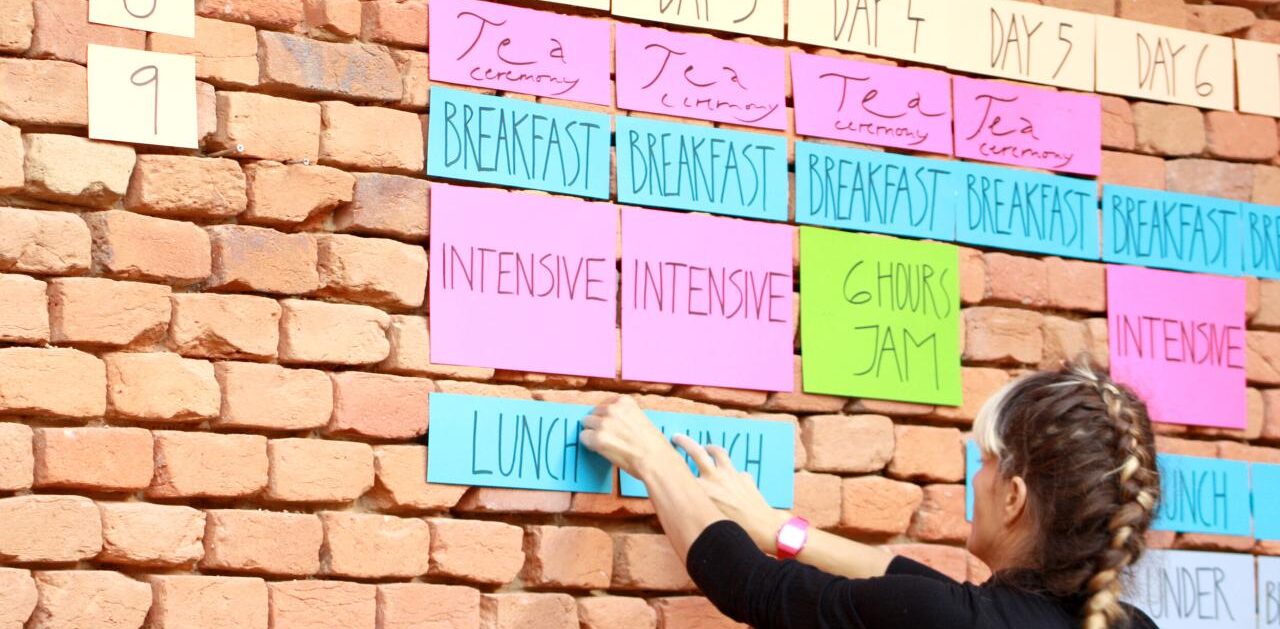 DAY 4
DAY 5
DAY 6
9
Tea
ceremony
Tea
ceremony
Tea
ceremony
Tea
ceremony
BREAKFAST
BREAKFAST
BREAKFAST
BREAKFAST
BREAKFAST
BRE
INTENSIVE
INTENSIVE
6 HOURS
JAM
INTENSIVE
LUNCH
LUNCH
UNCH
UNDER